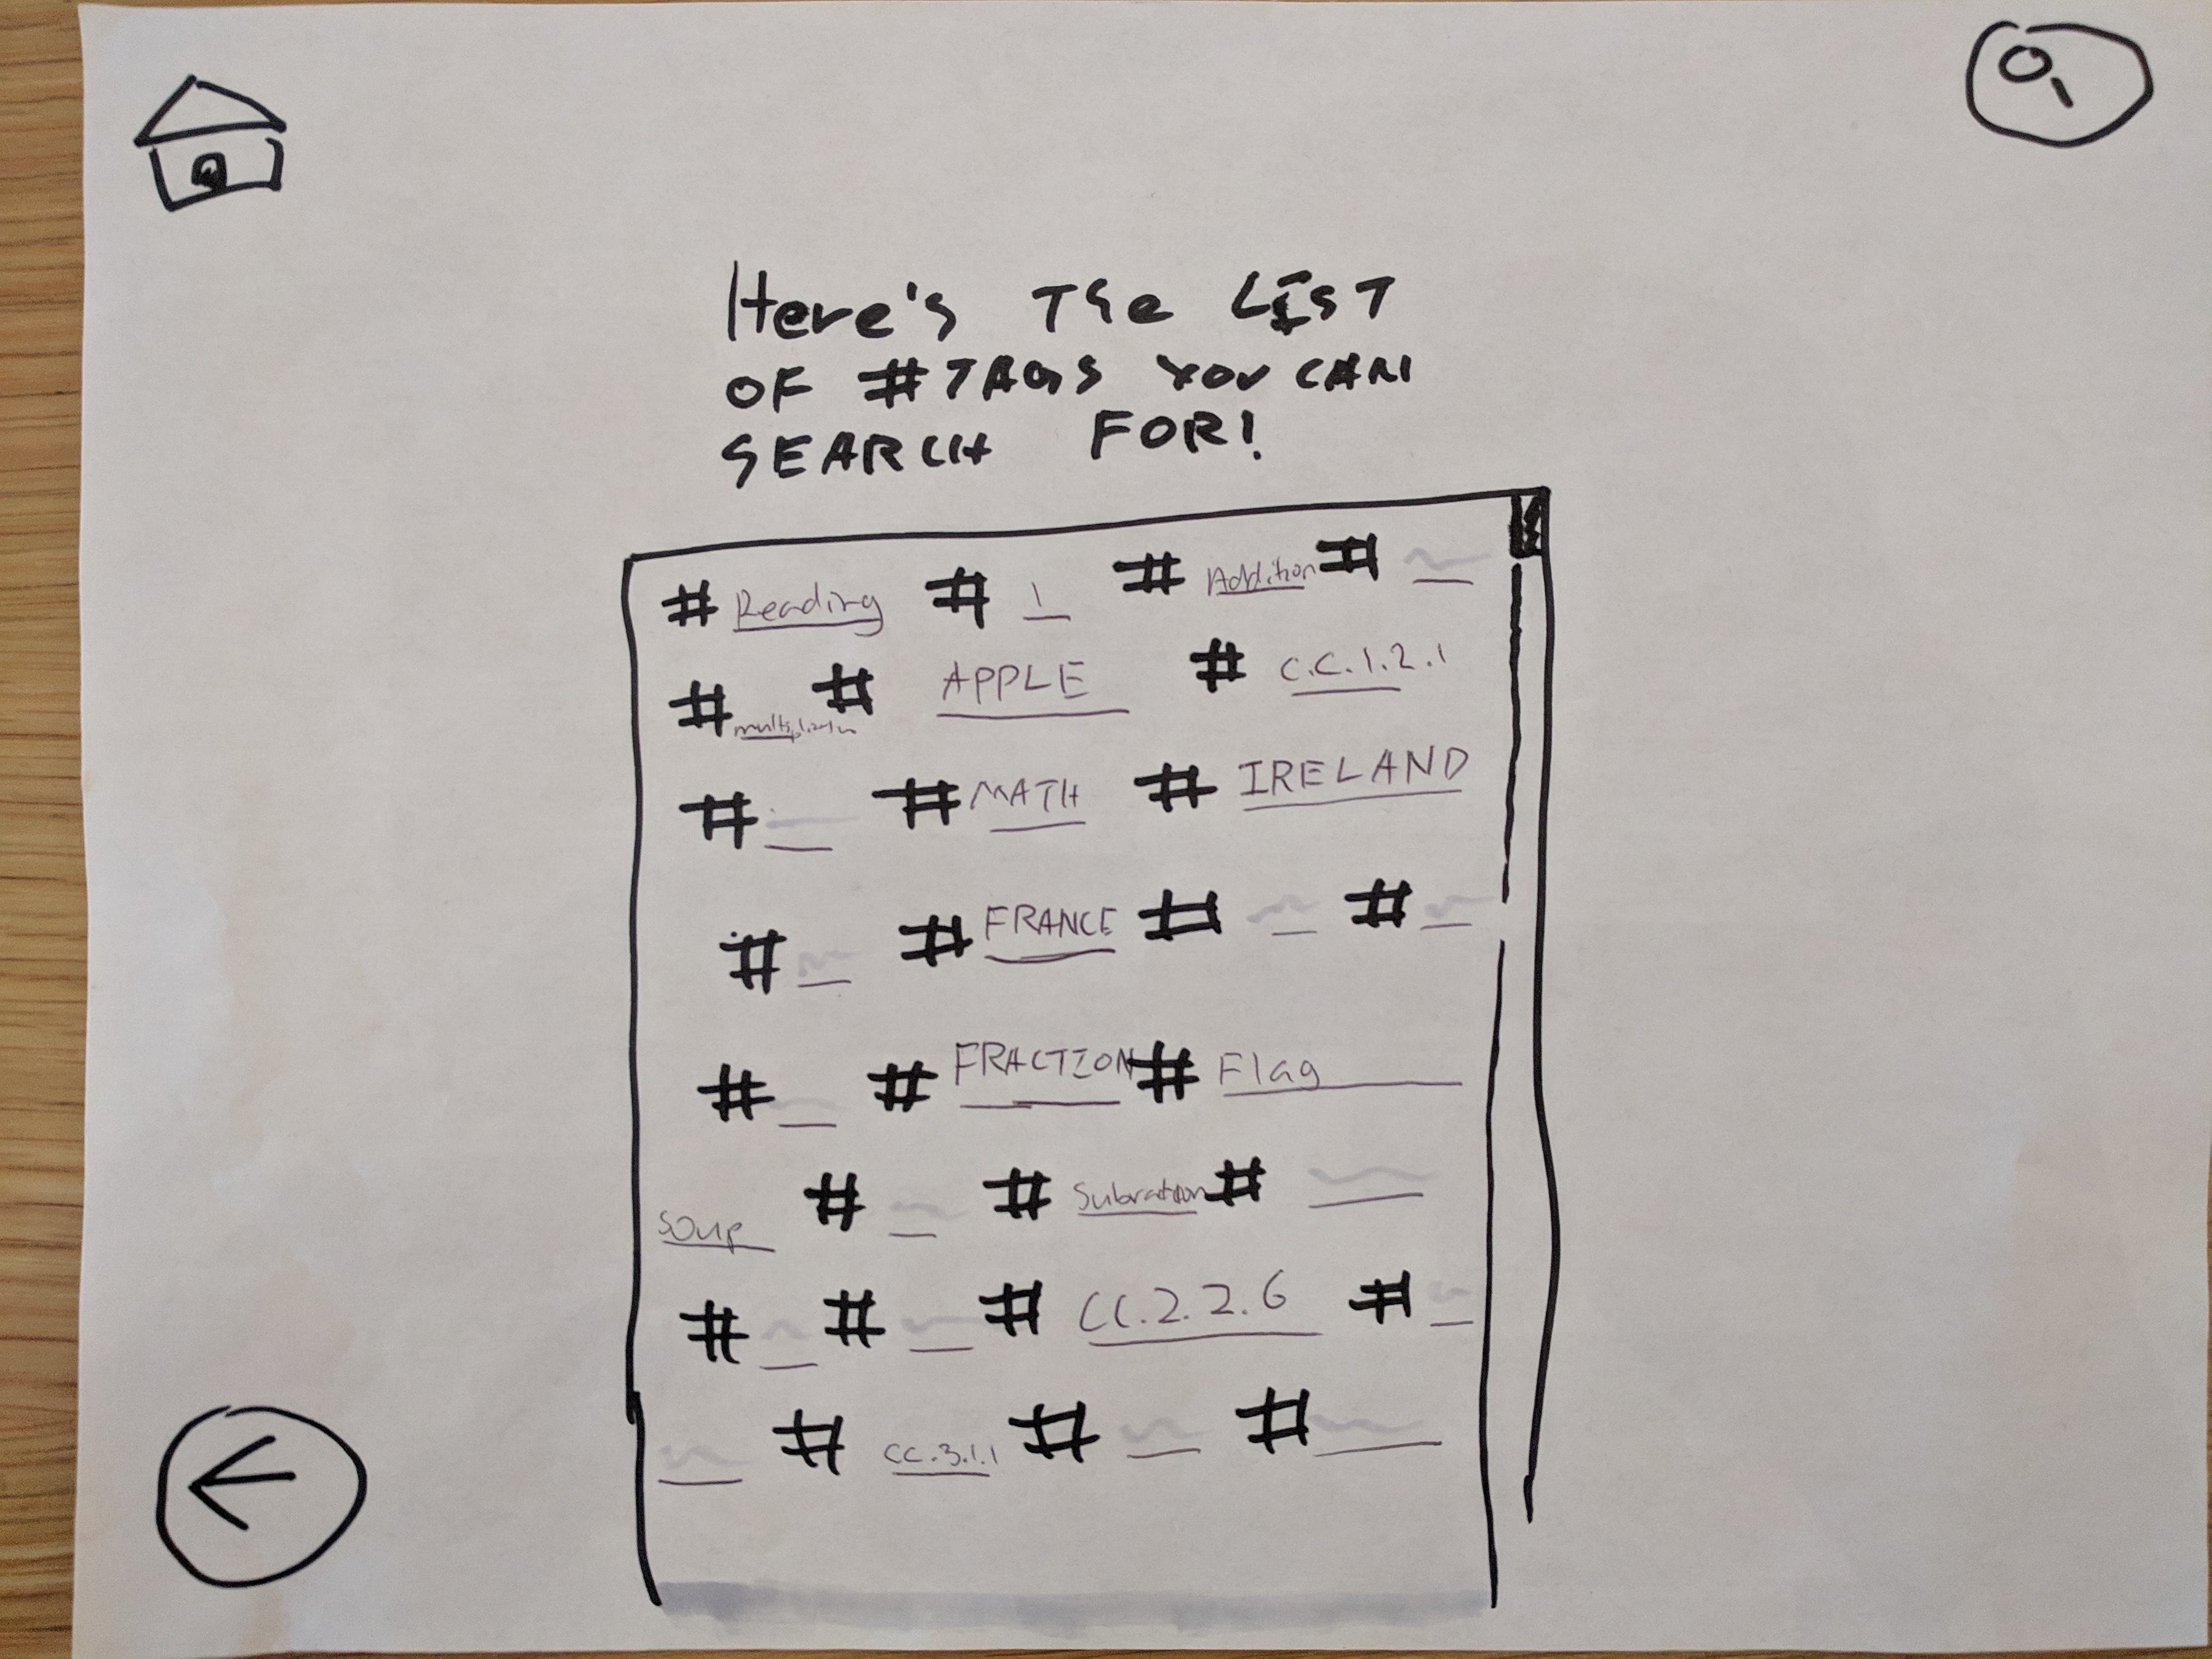 Here's The LIST
OF #TAGS YOU CAN
SEARCH FOR!
# Reading # 1 # Addition #
# multiplication # APPLE # C.C.1.2.1
# # MATH # IRELAND
# # FRANCE # #
# # FRACTION # Flag
Soup # # Subration #
# # # CC.2.2.6 #
# CC.3.1.1 # #